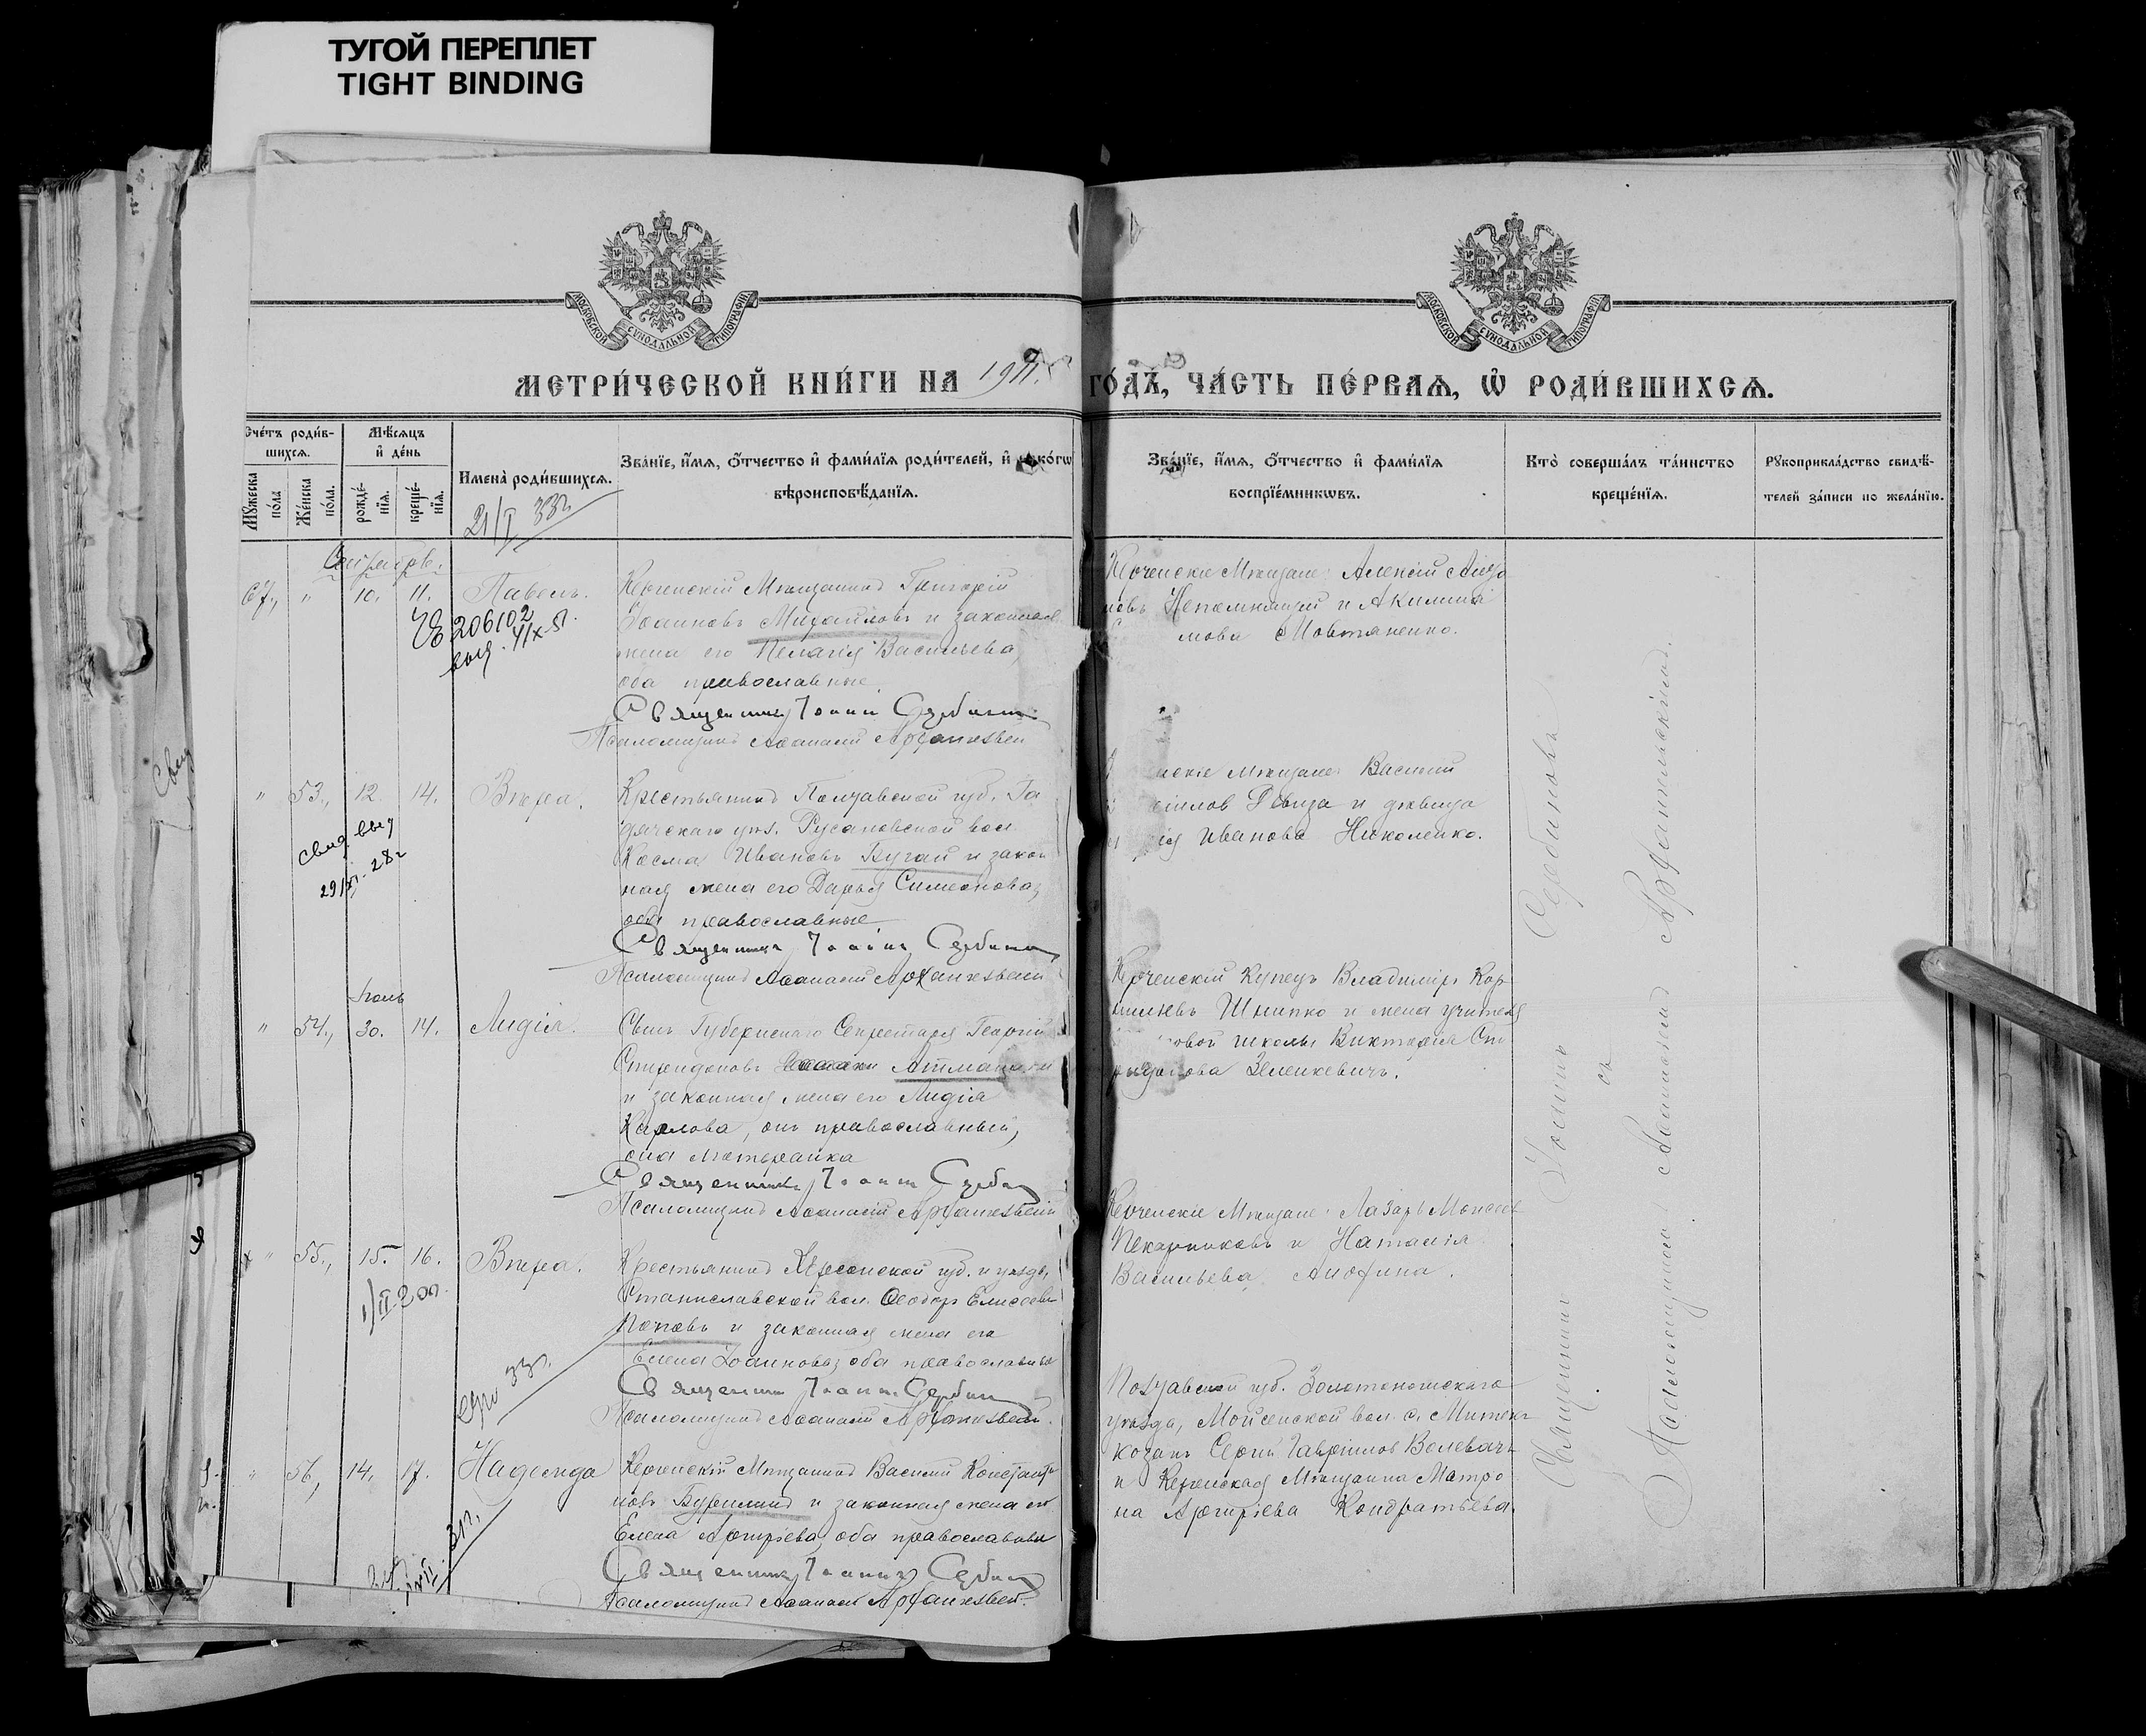 ТУГОЙ ПЕРЕПЛЕТ
TIGHT BINDING
МОСКОВСКОЙ СѴНОДАЛЬНОЙ ТИПОГРАФІИ
МОСКОВСКОЙ СѴНОДАЛЬНОЙ ТИПОГРАФІИ
МЕТРИ́ЧЕСКОЙ КНИ́ГИ НА 1911 ГО́ДЪ, ЧА́СТЬ ПЕ́РВАѦ, Ѡ҆ РОДИ́ВШИХСѦ.
Сче́тъ роди́в-
шихсѧ.
Мꙋ́жеска
по́ла
Же́нска
по́ла.
Мѣ́сѧцъ
и҆ де́нь
рожде́-
нїѧ.
креще́-
нїѧ.
Имена̀ роди́вшихсѧ.
Зва́нїе, и҆́мѧ, ѻ҆́тчество и҆ фами́лїѧ роди́телей, и҆ како́гѡ
вѣроисповѣ́данїѧ.
Зва́нїе, и҆́мѧ, ѻ҆́тчество и҆ фами́лїѧ
воспрїе́мникѡвъ.
Кто̀ соверша́лъ та́инство
креще́нїѧ.
Рꙋкоприкла́дство свидѣ́-
телей за́писи по жела́нїю.
21/I 33г.
Сентябрь.
67, " 10. 11. Павелъ.
206102
выд.
Керченскій Мѣщанинъ Григорій
Іоанновъ Михайловъ и законная
жена его Пелагія Васильева,
оба православные.
Священникъ Іоаннъ Сербиновъ
Псаломщикъ Аѳанасій Архангельскій
Керченскіе Мѣщане: Алексій
новъ Непомнящій и Акилина
мова Мовтяненко.
" 53., 12. 14. Вѣра.
свид. выд
29/XI. 28г
Крестьянинъ Полтавской губ. Га
дячскаго уѣз. Русановской вол.
Косма Ивановъ Бугай и закон
ная жена его Дарья Симеонова,
оба православные
Священникъ Іоаннъ Сербиновъ
Псаломщикъ Аѳанасій Архангельскій
Мѣщане: Василій
Ревиза и дѣвица
Иванова Николенко.
Іюль
" 54., 30. 14. Лидія.
Сынъ Губернскаго Секретаря Георгій
Спиридоновъ Атманаки
и законная жена его Лидія
Карлова, онъ православный,
она лютеранка
Священникъ Іоаннъ Сербиновъ
Псаломщикъ Аѳанасій Архангельскій
Керченскій Купецъ Владиміръ Кор
ниліевъ Шнипко и жена учителя
школы Викторія Спи
ридонова Зеленкевичъ.
" 55., 15. 16. Вѣра.
Крестьянинъ Херсонской губ. и уѣзда,
Станиславской вол. Ѳеодоръ Елисеевъ
Поповъ и законная жена его
Елена Іоаннова, оба православные
Священникъ Іоаннъ Сербиновъ
Псаломщикъ Аѳанасій Архангельскій.
Керченскіе Мѣщане: Лазарь Моисеев
Пекарниковъ и Наталія
Васильева Анохина.
33г.
" 56, 14. 17. Надежда
Керченскій Мѣщанинъ Василій Константи
новъ и законная жена его
Елена Аргиріева, оба православные
Священникъ Іоаннъ Сербиновъ
Псаломщикъ Аѳанасій Архангельскій.
Полтавской губ. Золотоношскаго
уѣзда, Мойсенской вол. с.
козакъ Сергій Гавріиловъ
и Керченская Мѣщанка Матро
на Аргиріева Кондратьева.
31г.
Священникъ Іоаннъ Сербиновъ
съ
Псаломщикомъ Аѳанасіемъ Архангельскимъ.